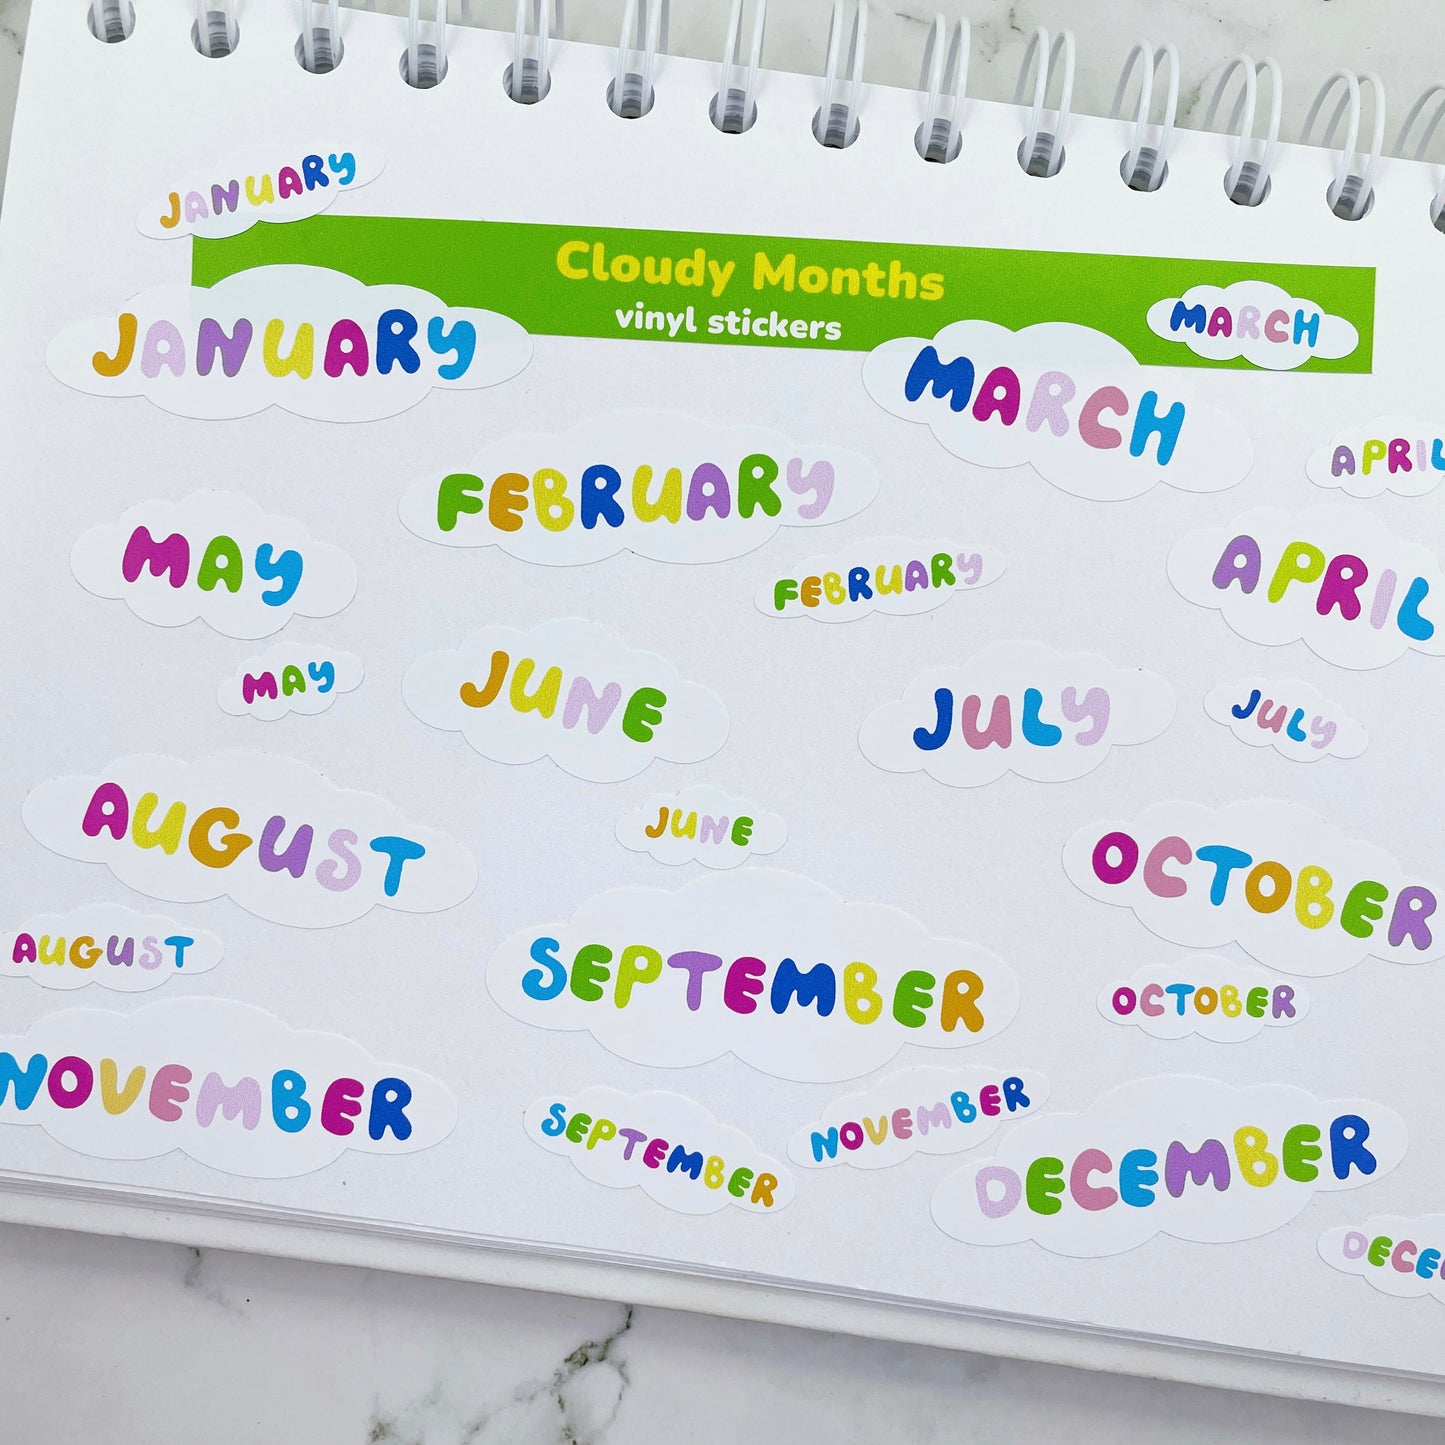 JANUARY
Cloudy Months
vinyl stickers
MARCH
JANUARY
MARCH
APRIL
FEBRUARY
MAY
FEBRUARY
APRIL
MAY
JUNE
JULY
JULY
AUGUST
JUNE
OCTOBER
AUGUST
SEPTEMBER
OCTOBER
NOVEMBER
SEPTEMBER
NOVEMBER
DECEMBER
DECE